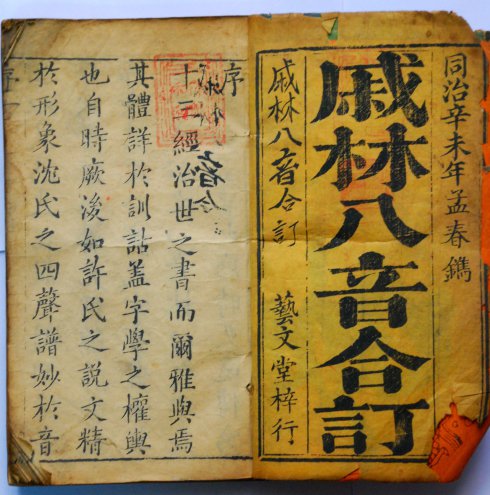 同治辛未年孟春鐫
戚林八音合訂
戚林八音合訂
藝文堂梓行
序
十三經治世之書而爾雅與焉
其體詳於訓詁蓋字學之權輿
也自時厥後如許氏之説文精
於形象沈氏之四聲譜妙於音
序